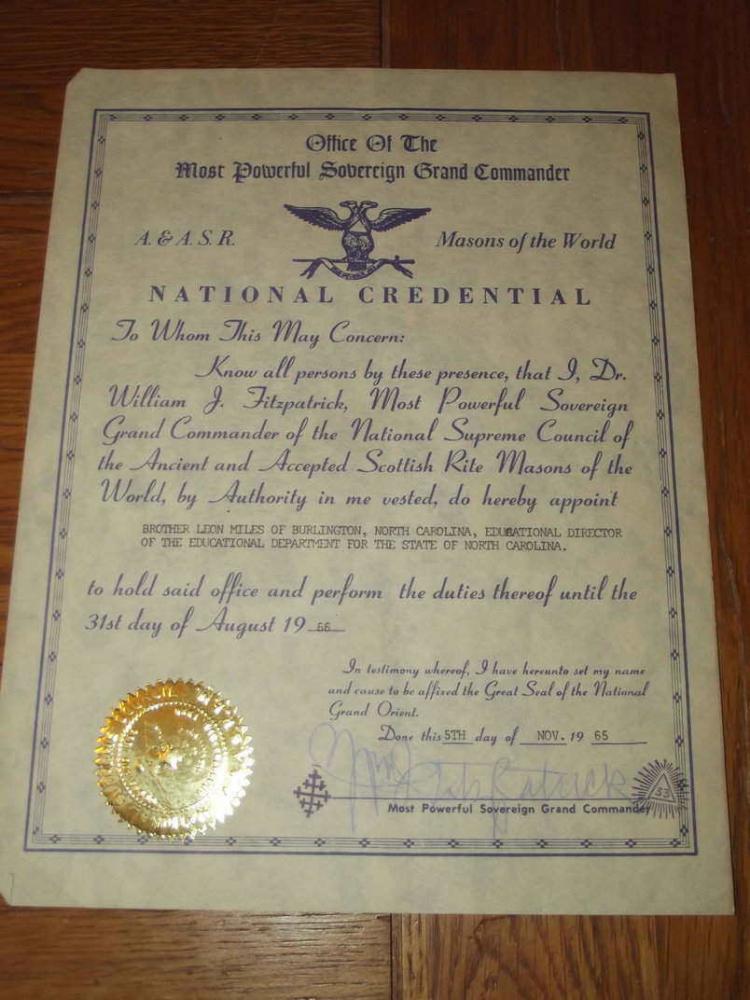 Office Of The
Most Powerful Sovereign Grand Commander
A. & A. S. R.
Masons of the World
NATIONAL CREDENTIAL
To Whom This May Concern:
Know all persons by these presence, that I, Dr.
William J. Fitzpatrick, Most Powerful Sovereign
Grand Commander of the National Supreme Council of
the Ancient and Accepted Scottish Rite Masons of the
World, by Authority in me vested, do hereby appoint
BROTHER LEON MILES OF BURLINGTON, NORTH CAROLINA, EDUCATIONAL DIRECTOR
OF THE EDUCATIONAL DEPARTMENT FOR THE STATE OF NORTH CAROLINA.
to hold said office and perform the duties thereof until the
31st day of August 19 66
In testimony whereof, I have hereunto set my name
and cause to be affixed the Great Seal of the National
Grand Orient.
Done this 5TH day of NOV. 19 65
Wm J Fitzpatrick
Most Powerful Sovereign Grand Commander
33